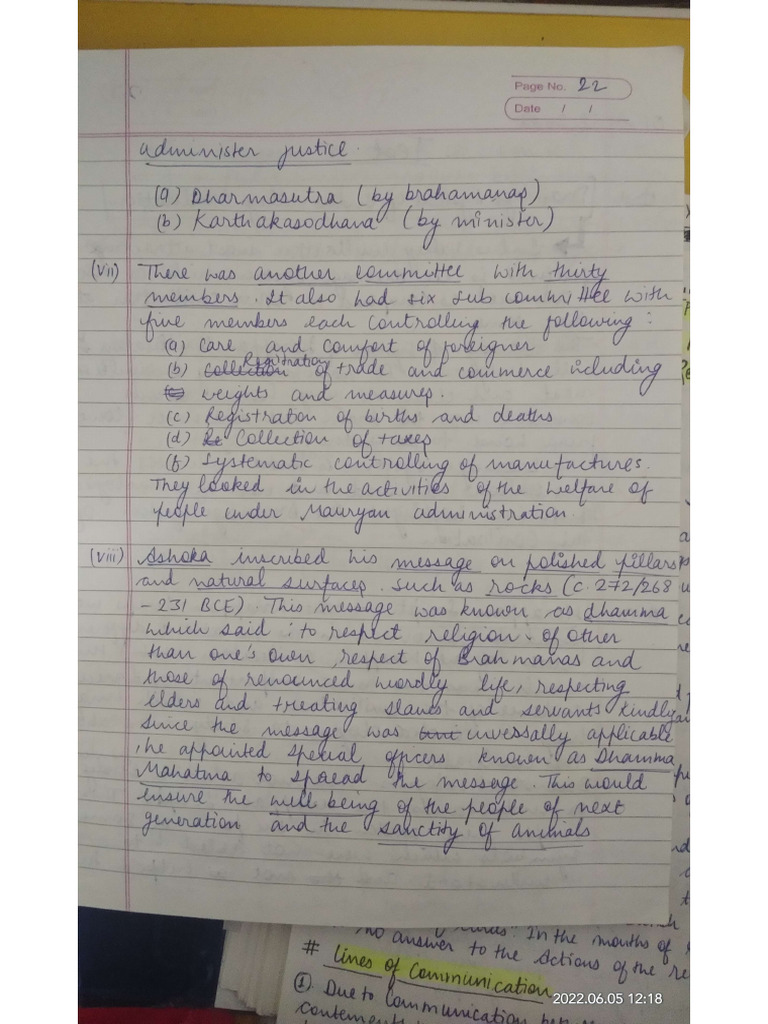 Page No. 22
Date / /
administer justice.
(a) Dharmasutra (by brahamanas)
(b) Karthakasodhana (by minister)
(vii) There was another committee with thirty
members. It also had six sub committee with
five members each controlling the following:
(a) care and comfort of foreigner
Registration
(b) collection of trade and commerce including
(c) weights and measures.
(c) Registration of births and deaths
(d) Re Collection of taxes
(f) Systematic controlling of manufactures.
They looked in the activities of the welfare of
people under Mauryan administration
(viii) Ashoka inscribed his message on polished pillars
and natural surfaces. such as rocks (c. 272/268
- 231 BCE). This message was known as dhamma
which said : to respect religion of other
than one's own, respect of Brahmanas and
those of renounced wordly life, respecting
elders and treating slaves and servants kindly
since the message was inversally applicable
, he appointed special officers known as Dhamma
Mahatma to spread the message. This would
ensure the well being of the people of next
generation and the sanctity of animals
words". In the mouths of
no answer to the actions of the re
# lines of communication
(1). Due to Communication
2022.06.05 12:18